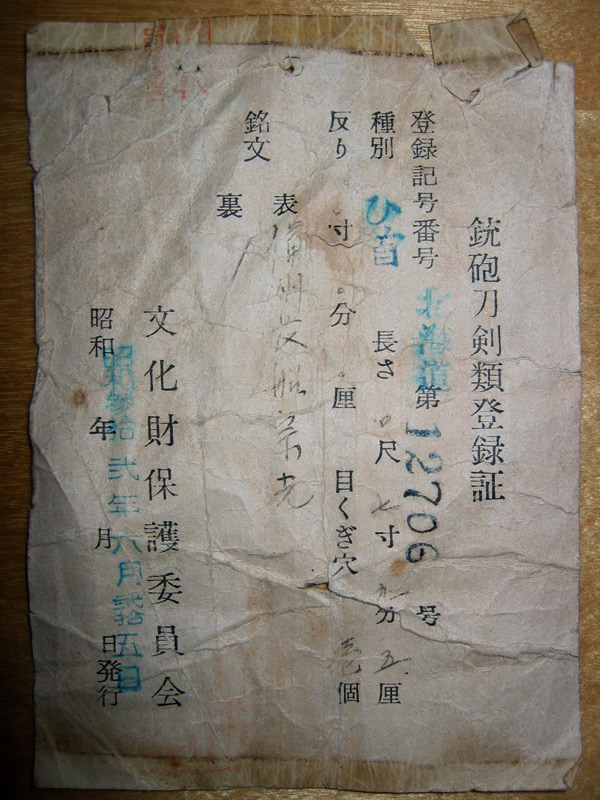 銃砲刀剣類登録証
登録記号番号 北海道 第 12706 号
種別 ひ首 長さ 0尺 七寸 九分 五厘
反り 0寸 0分 0厘 目くぎ穴 壱個
銘文 表 備州長船栄光
裏
文化財保護委員会
昭和 年 月 日発行
昭和参拾弐年六月弐拾五日